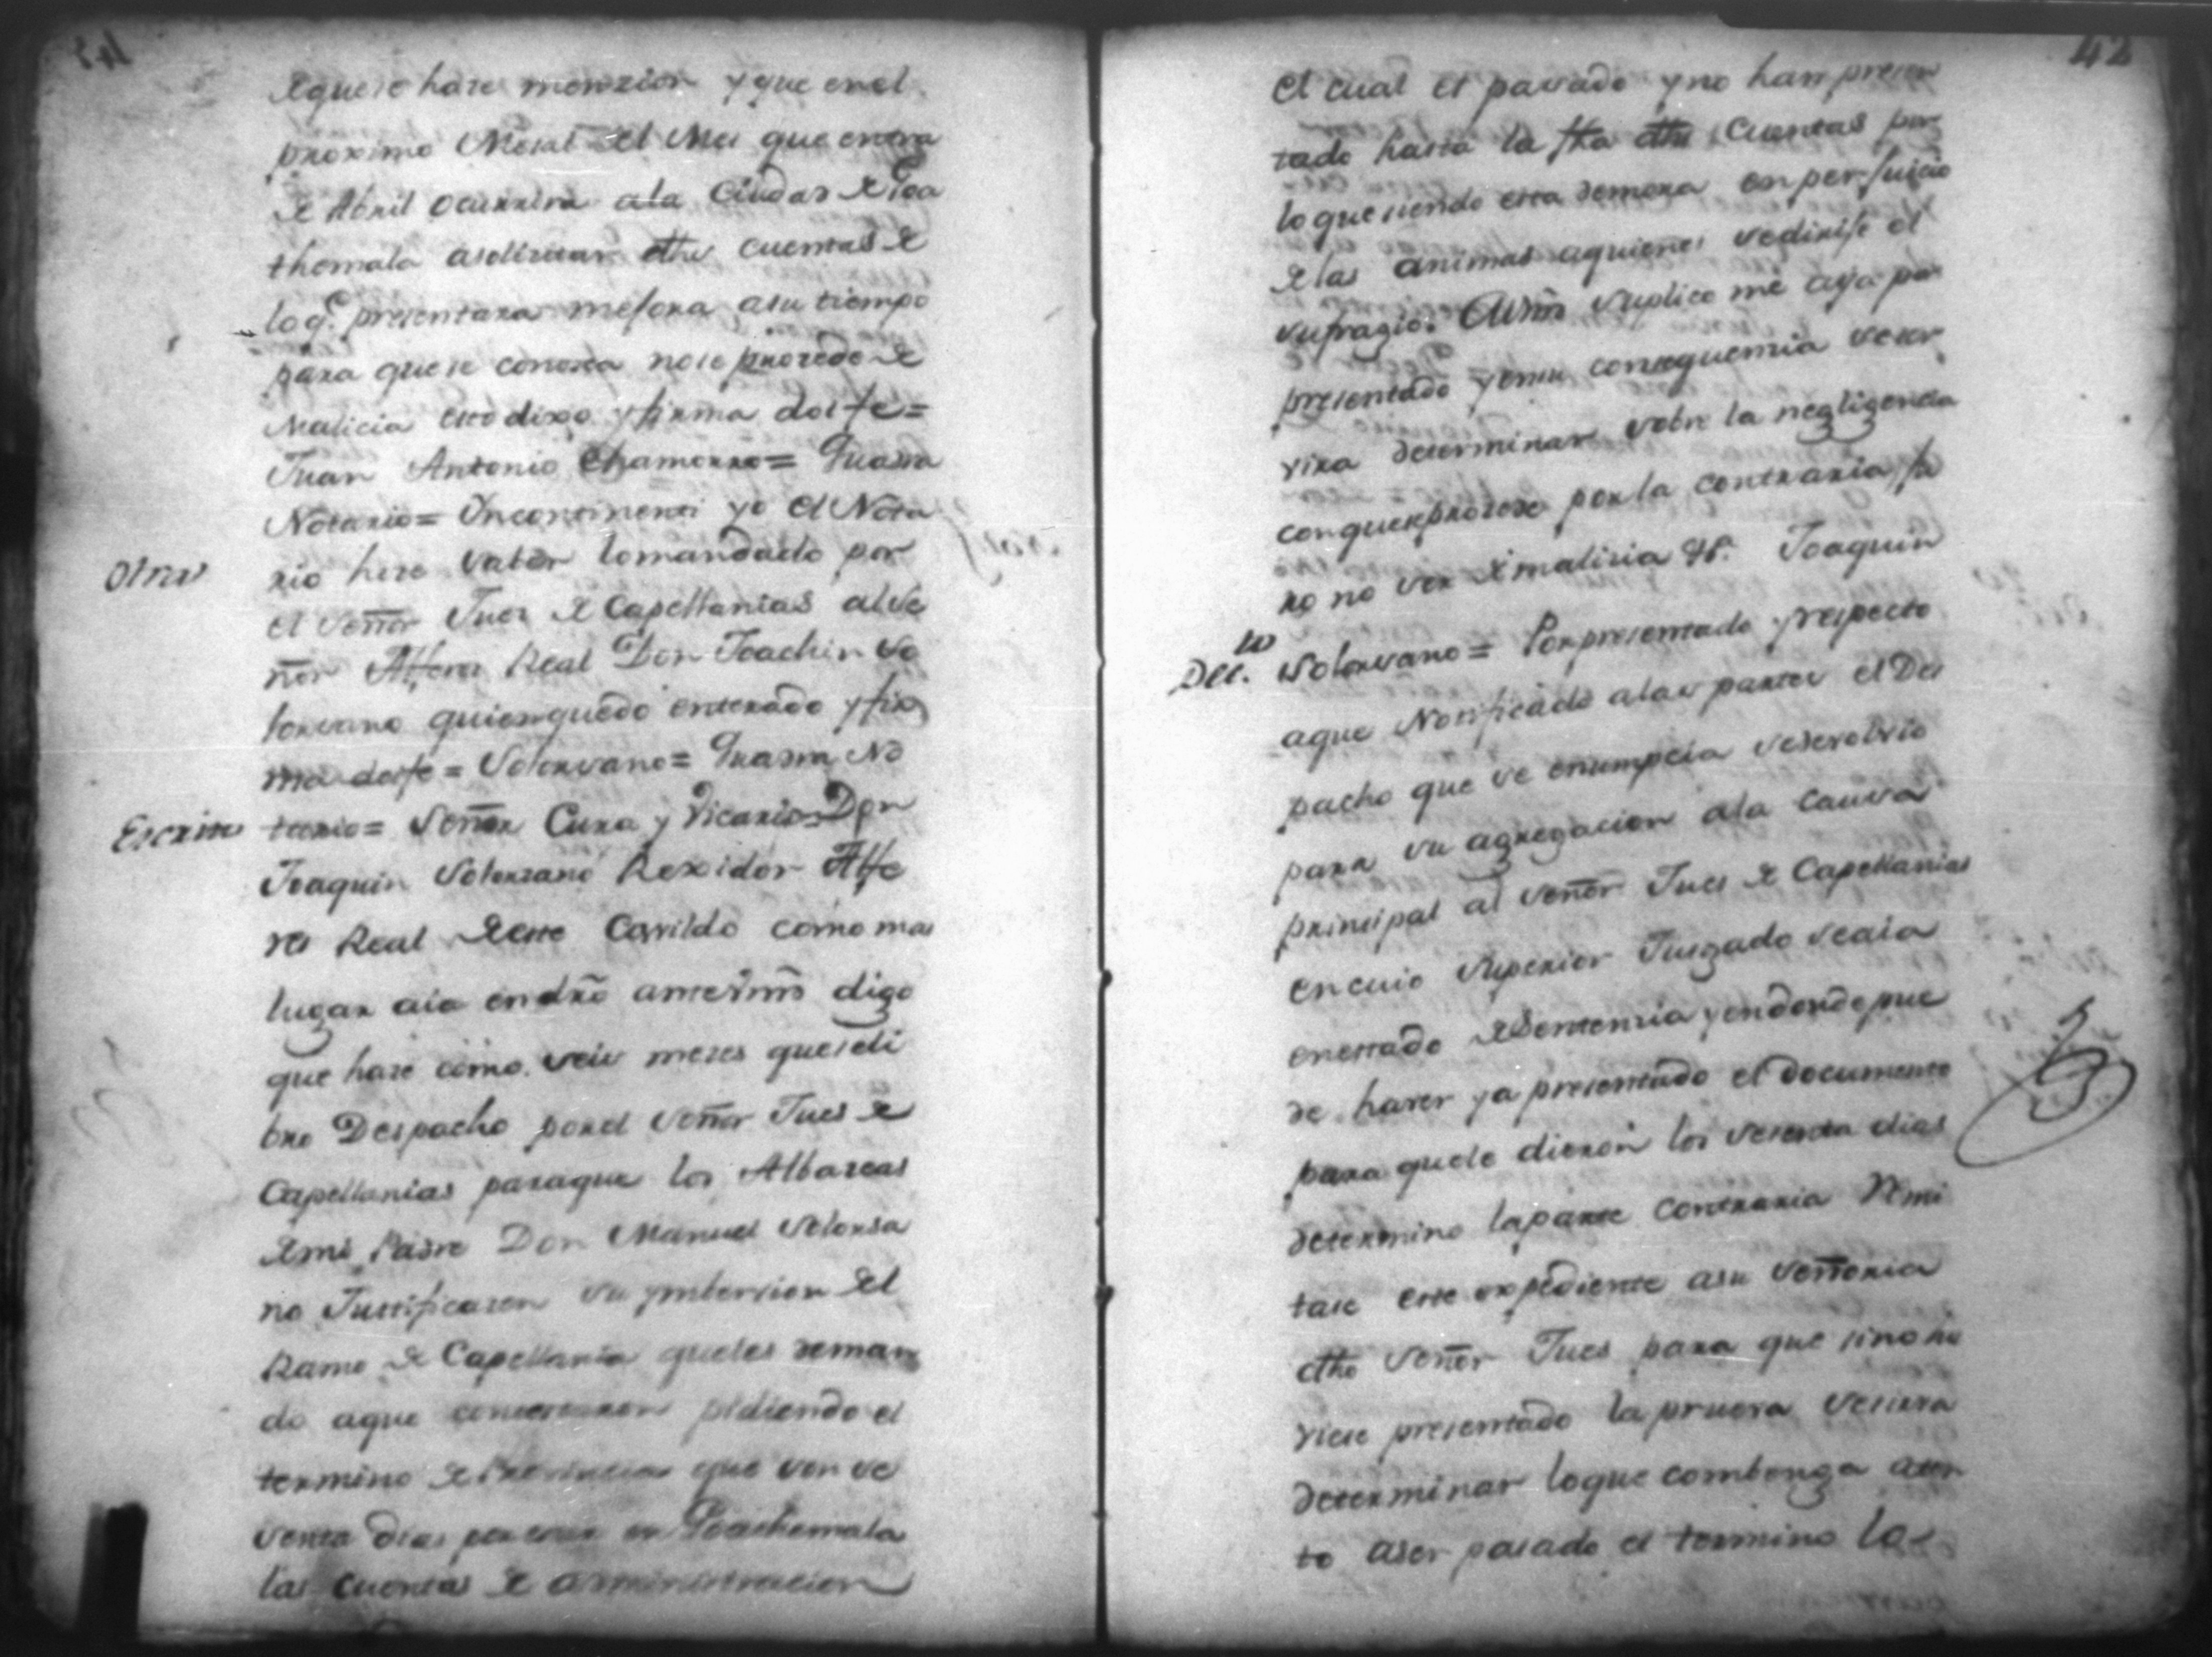 de que se haze menzion y que en el
proximo Mesal del Mes que entra
de Abril ocurrira a la Ciudad de Goa
themala a solizitar dthas cuentas de
lo q.e presentara mejora a su tiempo
para que se conosca no se procede de
Malicia esto dixo y firma doi fe =
Juan Antonio Chamorro = Guarra
Notario = Yncontinenti yo el Nota
Otra
rio hize saber lo mandado por
el señor Jues de Capellanias al se
ñor Alferes Real Don Joachin So
lorsano quien quedó enterado y fir
ma doi fe = Solorsano = Guarra No
Escrito
tario = Señor Cura y Vicario = Don
Joaquin Solorzano Rexidor Alfe
res Real de este Cavildo como mas
lugar aia en dro ante Vmd digo
que haze como seis mezes que se li
bro Despacho por el señor Jues de
Capellanias para que los Albazeas
de mi Padre Don Manuel Solorsa
no Justificazen su ymbersion del
Ramo de Capellania que les deman
do a que contestaron pidiendo el
termino de Provincia que son se
senta dias para en Goathemala
las cuentas de administracion
42
el cual es pasado y no han presen
tado hasta la fha dthas Cuentas por
lo que siendo esta demora en perjuicio
de las animas a quienes se dirije el
sufragio: A Vmd suplico me aya por
presentado y en su consequenzia se ser
vira determinar sobre la negligencia
con que se prozede por la contraria ju
ro no ser de malizia &a. Joaquin
Dec.to
Solorsano = Por presentado y respecto
a que Notificado a las partes el Des
pacho que se enumpcia se devolvio
para su agregacion a la causa
principal al señor Jues de Capellanias
en cuio Superior Jusgado se aia
en estado de Sentenzia y en donde pue
de haver ya presentado el documento
para que le dieron los sesenta dias
determino la parte contraria Remi
tase este expediente a su señoria
dtho señor Jues para que si no hu
viese presentado la prueva se sirva
determinar lo que combenga aten
to a ser pasado el termino lo